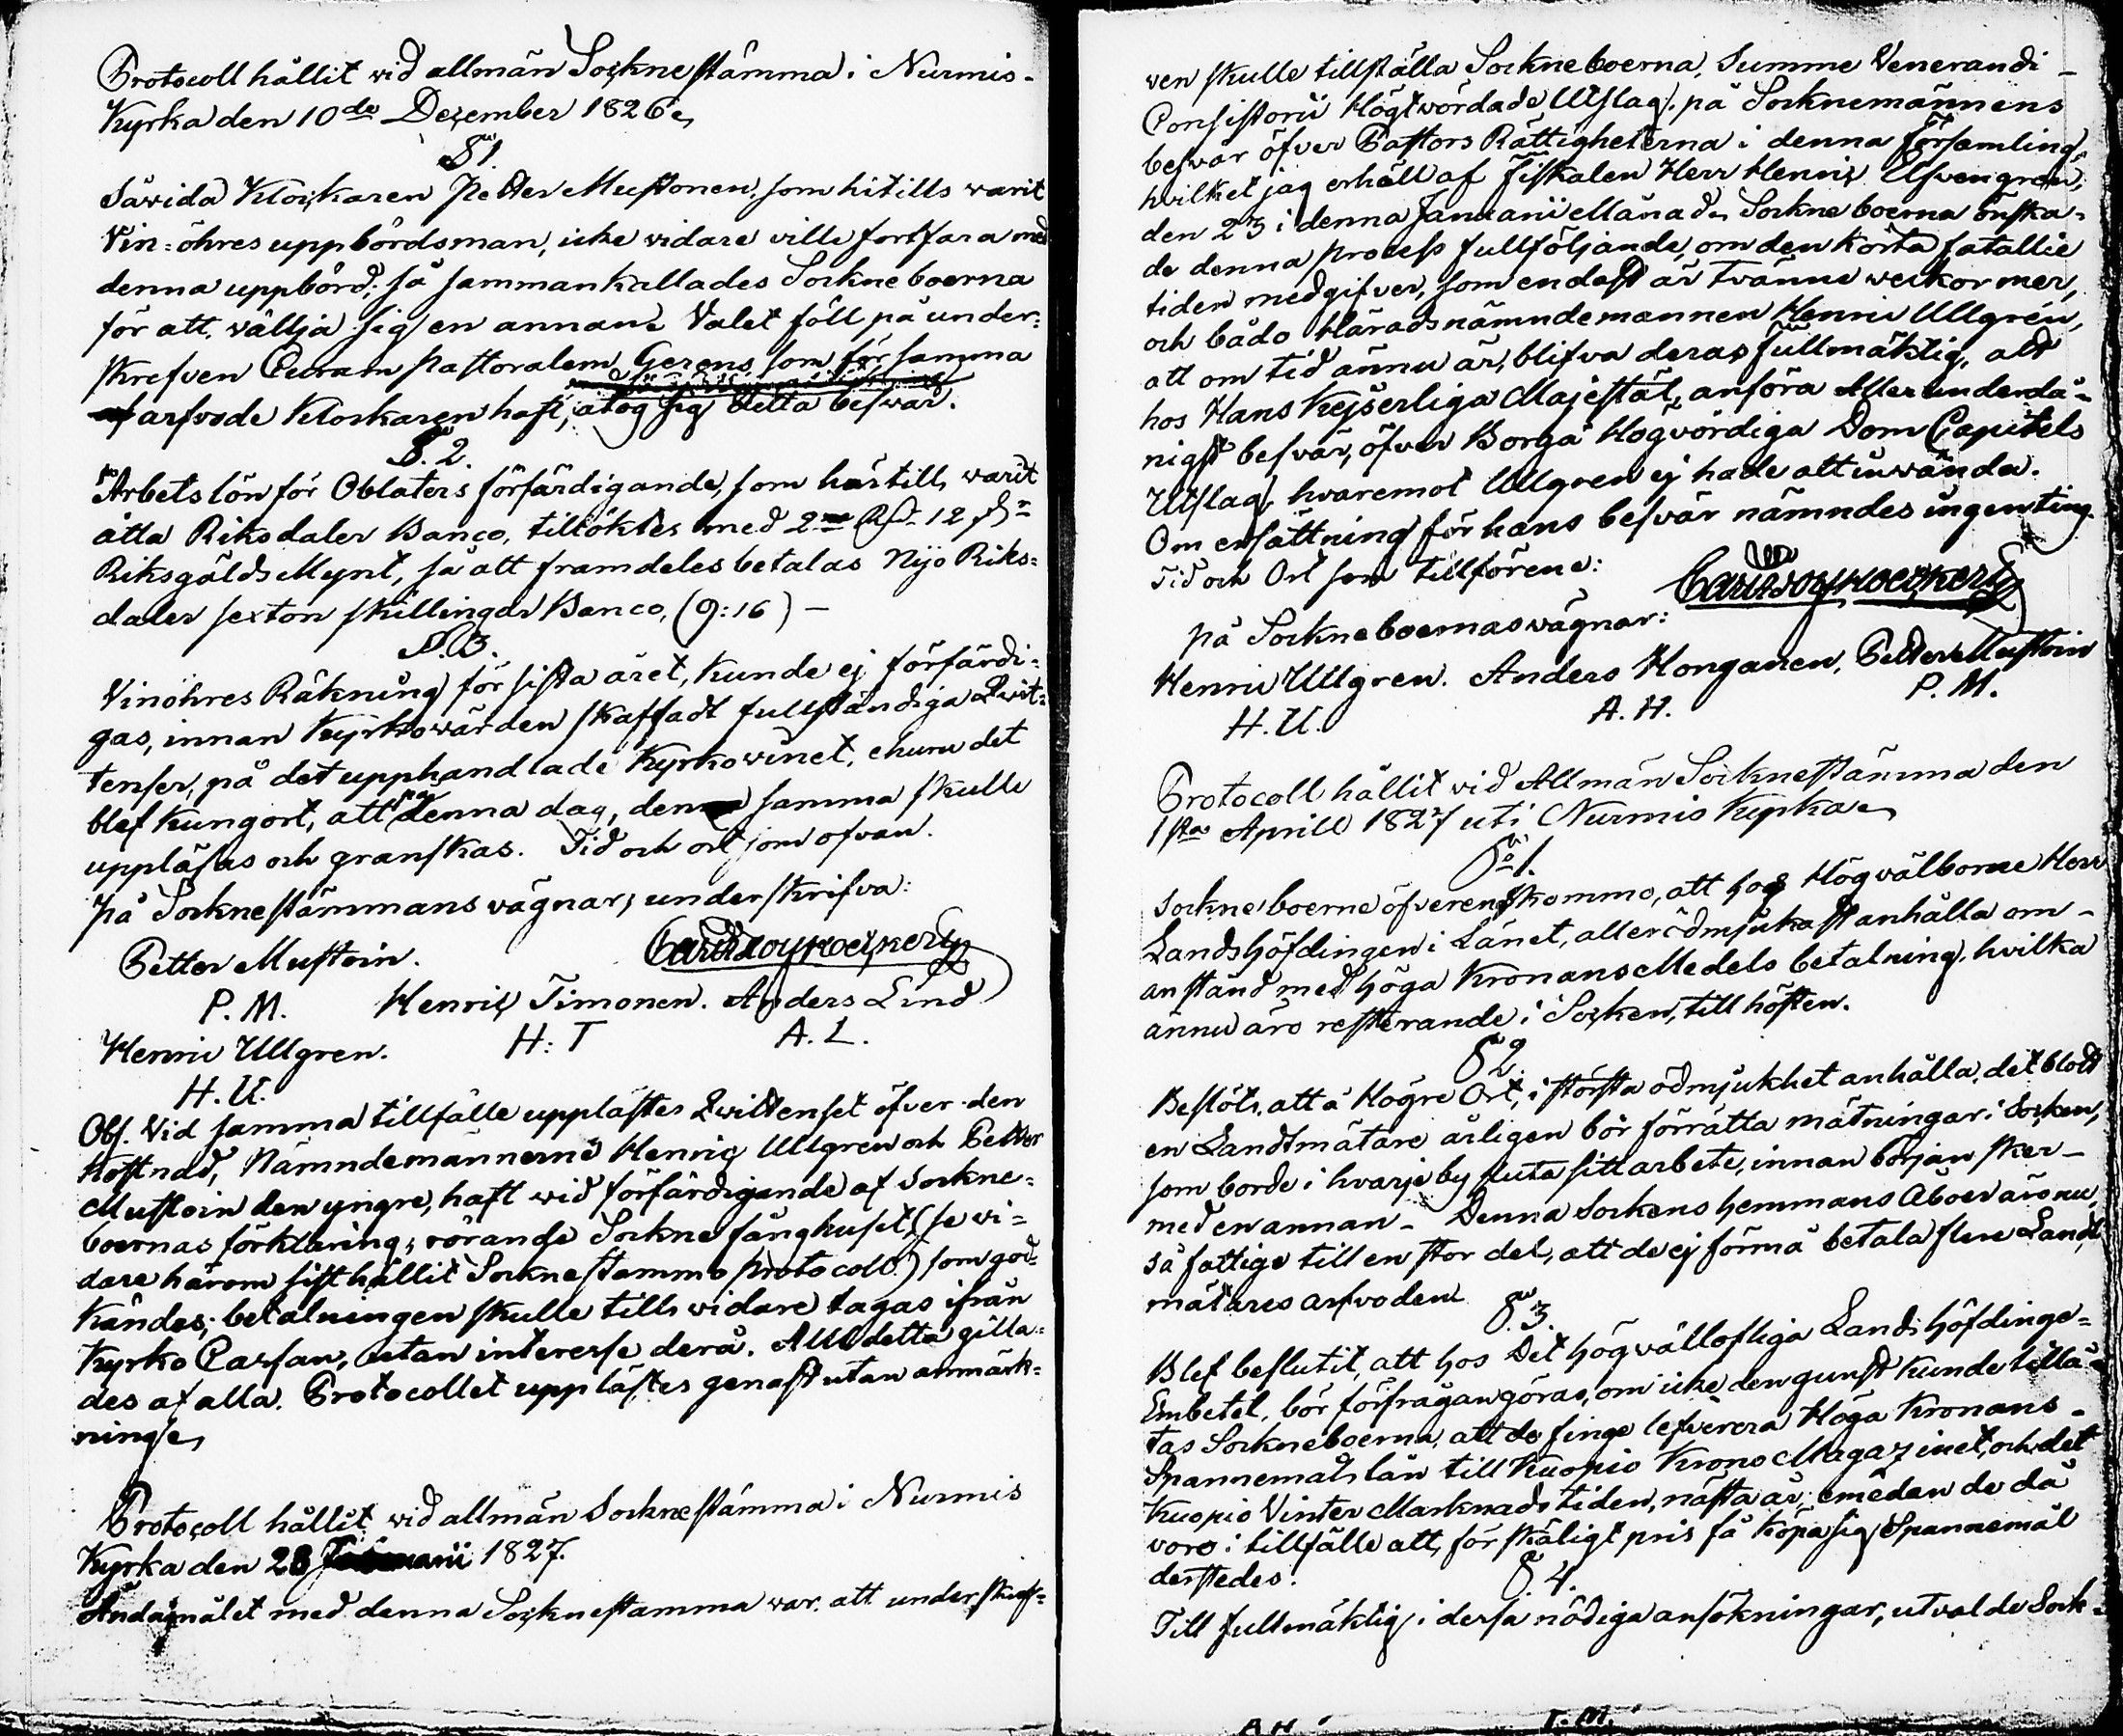 Protocoll hållit vid allmän Sockne stämma i Nurmis-
Kyrka den 10de December 1826.
§1.
Såvida Klockaren Petter Mustonen, som hitills varit
Vin-öhres uppbördsman, icke vidare ville fortfara med
denna uppbörd; så sammankallades Sockneboerna
för att vällja sig en annan. Valet föll på under-
skrefven Curam pastoralem Gerens, som för samma
arfvode Klockaren haft, åtog sig detta besvär.
§. 2.
Arbetslön för Oblaters förfärdigande, som härtill varit
åtta Riksdaler Banco, tillöktes med 2 Rd. 12 s.
Riksgälds Mynt, så att framdeles betalas Nijo Riks-
daler sexton skillingar Banco, (9:16) -
§. 3.
Vinöhres Räkning för sista året, kunde ej förfärdi-
gas, innan Kyrkovärden skaffadt fullständiga Qvit-
tenser, på det upphandlade Kyrkovinet, ehuru det
blef kungort, att denna dag, den samma skulle
uppläsas och granskas. Tid och ort som ofvan.
På Socknestämmans vägnar, underskrifva:
Petter Mustoin.
P. M. Henric Timonen. Anders Lind
Henric Ullgren. H: T A. L.
H. U.
Obs. Vid samma tillfälle upplästes Qvittenset öfver den
kostnad, Nämndemännerne Henric Ullgren och Petter
Mustoin den yngre, haft vid förfärdigande af Sockne-
boernas förklaring, rörande Sockne fånghuset (se vi-
dare härom sist hållit Socknestämmo protocoll) som god-
kändes; betalningen skulle tills vidare tagas ifrån
Kyrko Cassan, utan interesse derå. Allt detta gilla-
des af alla. Protocollet upplästes genast utan anmärk-
ning.
Protocoll hållit vid allmän Socknestämma i Nurmis
Kyrka den 28 Januarii 1827.
Ändamålet med denna Socknestämma var att underskref-
ven skulle tillställa Sockneboerna, Summe Venerandi
Consistorii Högtvördade Utslag, på Socknemännens
besvär öfver Pastors Rättigheterna i denna Församling,
hvilket jag erhöll af Fiskalen Herr Henric
den 23 i denna Januarii Månad. Sockneboerna önska-
de denna process fullföljande, om den korta fatallie
tiden medgifver, som endast är tvänne veckor mer,
och bådo Häradsnämndemannen Henric Ullgrén,
att om tid ännu är, blifva deras fullmäktig, att
hos Hans Kejserliga Majestät, anföra Allerunderdå-
nigst besvär, öfver Borgå Högvördiga Dom Capitels
Utslag, hvaremot Ullgren ej hade att invända.
Om ersättning för hans besvär nämndes ingenting.
Tid och Ort som tillförene:
på Sockneboernas vägnar:
Henric Ullgren. Anders Honganen. Petter Mustoin
H. U. A. H. P. M.
Protocoll hållit vid Allmän Socknestämma den
1sta Aprill 1827 uti Nurmis Kyrka
§1.
Sockneboerne öfverenskommo, att hos Högvälborne Herr
Landshöfdingen i Länet, allerödmjukast anhålla om
anstånd med höga Kronans Medels betalning, hvilka
ännu äro resterande i Socken, till hösten.
§2.
Beslöts, att å Högre Ort, i största ödmjukhet anhålla, det blott
en Landtmätare årligen bör förrätta mätningar i Socken,
som borde i hvarje by sluta sitt arbete, innan början sker
med en annan. Denna Sockens hemmans Åboer äro nu,
så fattige till en stor del, att de ej förmå betala flere Landt
mätares arfvoden.
§. 3.
Blef beslutit, att hos Det högvällofliga Landshöfdinge-
Embetet, bör förfrågan göras, om icke den gunst kunde tillå-
tas Sockneboerna, att de finge lefverera Höga Kronans
Spannemåls lån till Kuopio Krono Magazinet, och det
Kuopio Vinter Marknads tiden, nästa år, emedan de då
voro i tillfälle att, för skäligt pris få köpa sig Spannemål
derstedes.
§. 4.
Till fullmäktig i dessa nödiga ansökningar, utvalde Sock-